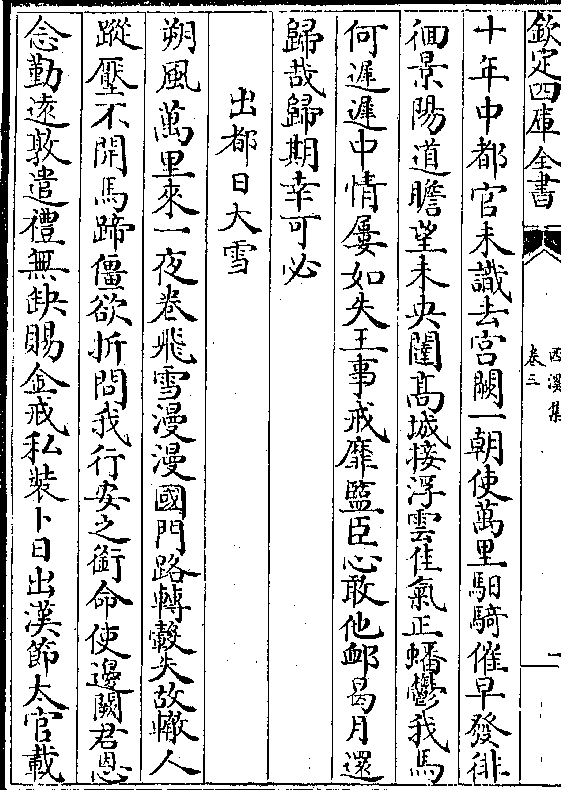 欽定四庫全書
西溪集
卷三
一
十年中都官未識去宫闕一朝使萬里馹騎催早發徘
徊景陽道瞻望未央闥髙城接浮雲佳氣正蟠鬱我馬
何遲遲中情屢如失王事戒靡盬臣心敢他邮曷月還
歸哉歸期幸可必
出都日大雪
朔風萬里來一夜卷飛雪漫漫國門路轉轂失故轍人
蹤壓不開馬蹄僵欲折問我行安之銜命使邊闕君恩
念勤逺敦遣禮無缺賜金戒私装卜日出漢節太官載